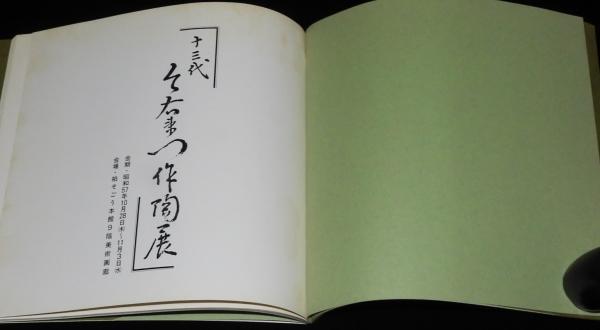 十三代
今右衛門作陶展
会期・昭和57年10月28日(木)〜11月3日(水)
会場・柏そごう本館9階美術画廊